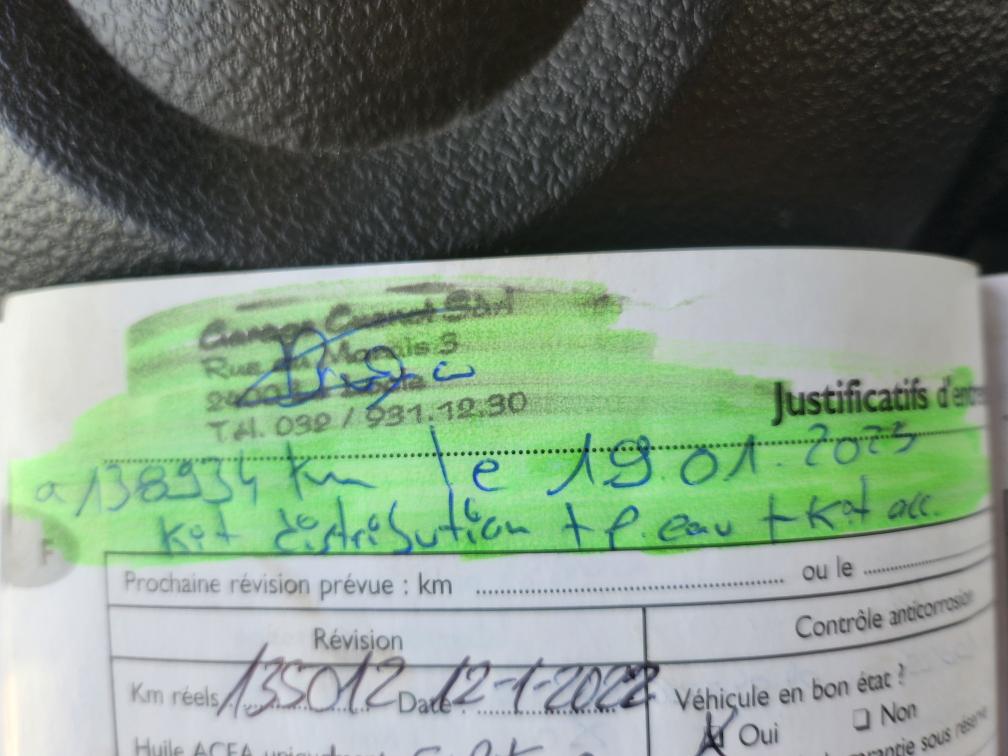 Garage Sàrl
Rue du Marais 3
Tél. 032 / 931.12.30
Justificatifs d'entre
a 138934 km le 19.01.2023
Kit distribution + P. eau + Kit acc.
F
Prochaine révision prévue : km ou le
Révision
Contrôle anticorrosion
Km réels 135012 Date 12-1-2022
Véhicule en bon état ?
Oui Non
Huile ACEA
sous réserve